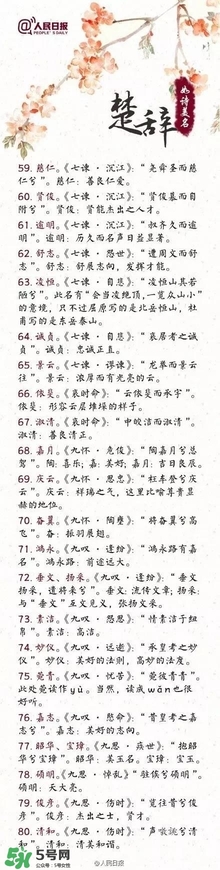 @人民日报
PEOPLE'S DAILY
楚辞
如诗美名
59. 慈仁。《七谏·沉江》:“尧舜圣而慈
仁兮”。慈仁:善良仁爱。
60. 贤俊。《七谏·沉江》:“贤俊慕而自
附兮”。贤俊:贤能杰出之人才。
61. 逾明。《七谏·沉江》:“叔齐久而逾
明”。逾明:历久而名声日益显著。
62. 舒志。《七谏·怨世》:“遭周文而舒
志”。舒志:舒展志向,发挥才能。
63. 凌恒。《七谏·自悲》:“凌恒山其若
陋兮”。此名有“会当凌绝顶,一览众山小”
的意境,只不过屈原写的是北岳恒山,杜
甫写的是东岳泰山。
64. 诚贞。《七谏·自悲》:“哀居者之诚
贞”。诚贞:忠诚正直。
65. 景云。《七谏·谬谏》:“龙举而景云
往”。景云:浓厚而有光亮的云。
66. 依斐。《哀时命》:“云依斐而承宇”。
依斐:形容云层堆垛的样子。
67. 淑清。《哀时命》:“中皎洁而淑清”。
淑清:善良清正。
68. 嘉月。《九怀·危俊》:“陶嘉月兮总
驾”。陶:喜乐;嘉:美好;嘉月:吉日良辰。
69. 庆云。《九怀·思忠》:“枉车登兮庆
云”。庆云:祥瑞之气,这里比喻尊贵显
赫的地位。
70. 奋翼。《九怀·陶壅》:“将奋翼兮高
飞”。奋:振羽展翅。
71. 鸿永。《九叹·逢纷》:“鸿永路有嘉
名”。鸿永路:前途远大。
72. 垂文、扬采。《九叹·逢纷》:“垂文
扬采,遗将来兮”。垂文:流传文章;扬采:
与“垂文”互文见义,张扬文采。
73. 素洁。《九叹·怨思》:“情素洁于纽
帛”。素洁:高洁。
74. 妙仪。《九叹·远逝》:“承皇考之妙
仪”。妙仪:美好的法则,高妙的法度。
75. 菀青。《九叹·忧苦》:“菀彼青青”。
此处菀读作yù。当然,读成wǎn也很
好听。
76. 嘉志。《九叹·愍命》:“昔皇考之嘉
志兮”。嘉志:美好的志向。
77. 昭华、宝璋。《九思·疾世》:“抱昭
华兮宝璋”。昭华:美玉名。宝璋:玉圭。
78. 硕明。《九思·悼乱》“驻俟兮硕明”。
硕明:天大亮。
79. 俊彦。《九思·伤时》:“览往昔兮俊
彦”。俊彦:杰出之士,贤才。
80. 清和。《九思·伤时》:“声噭誂兮清
和”。清和:清美和谐。
5号网
公众号:5号女性
@人民日报